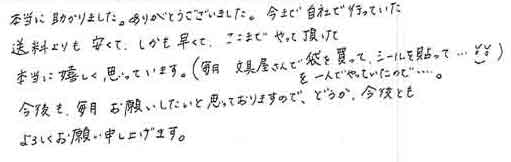 本当に助かりました。ありがとうございました。今まで自社で行っていた
送料よりも安くて、しかも早くて、ここまでやって頂けて
本当に嬉しく思っています。(毎月 文具屋さんで袋を買って、シールを貼って…
を一人でやっていたので…。)
今後も、毎月お願いしたいと思っておりますので、どうか、今後とも
よろしくお願い申し上げます。